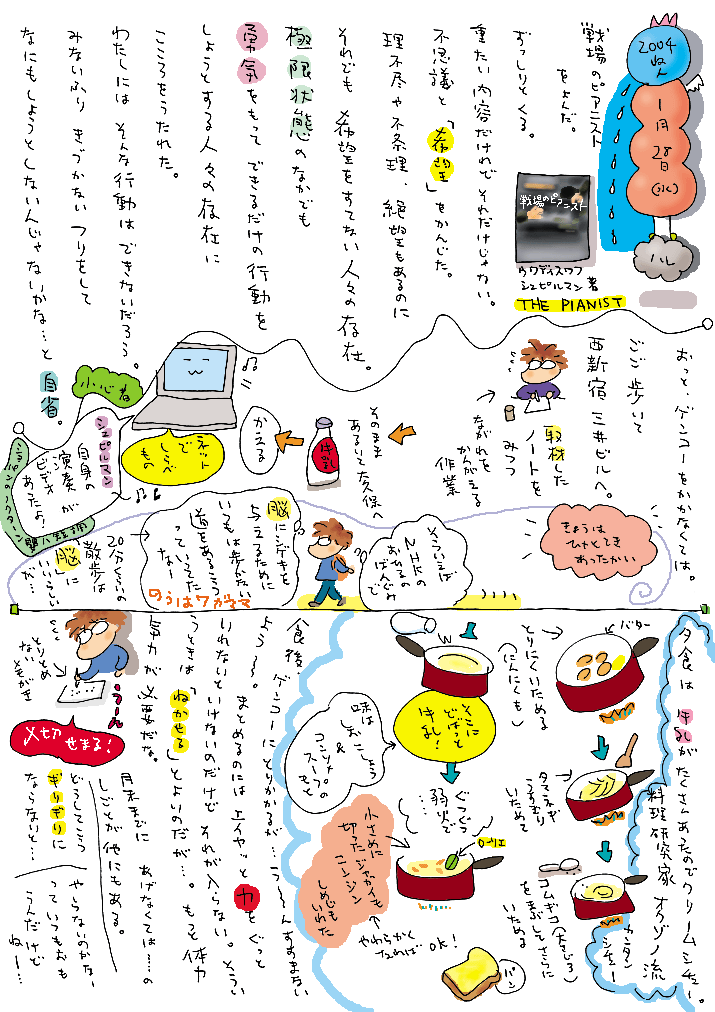 2004
1月
28日
(水)
ハレ
戦場のピアニスト
をよんだ。
ずっしりとくる。
重たい内容だけれど それだけじゃない。
不思議と「希望」をかんじた。
理不尽や不条理、絶望もあるのに
それでも 希望をすてない人々の存在。
極限状態のなかでも
勇気をもって できるだけの行動を
しようとする人々の存在に
こころをうたれた。
わたしには そんな行動は できないだろう。
みないふり きづかない フリをして
なにもしようとしないんじゃないかな…と 自省。
小心者
戦場のピアニスト
ウワディスワフ
シュピルマン 著
THE PIANIST
おっと、ゲンコーをかかなくては。
ごご 歩いて
西新宿 三井ビルへ。
取材した
ノートを
みつつ
ながれを
かんがえる
作業
そのまま
あるいて大久保へ
牛乳
かえる
ネット
で
しらべ
もの
シュピルマン
自身の
演奏が
ビデオ
あったよ!
きょうは
ひかくてき
あったかい
そういえば
NHKの
おひるの
ばんぐみで
脳にシゲキを
与えるために
いつもは歩かない
道をあるこう
っていってた
なー
のうはワガママ
20分くらいの
散歩は
「脳」に
いいらしい
が…
夕食は 牛乳がたくさんあるのでクリームシチュー。
料理研究家 オクゾノ流
カンタン
シチュー
バター
とりにくいためる
(にんにくも)
タマネギ
うすぎり
いためて
コムギコ(大さじ3)
をまぶしてさらに
いためる
そこに
どばっと
牛乳!
味は
しおこしょう
&
コンソメ
スープの
もと
ぐつぐつ
弱火で
…
ローリエ
小さめに
切ったジャガイモ
ニンジン
しめじも
いれた
やわらかく
なればOK!
パン
食後、ゲンコーにとりかかるが…うーんすすまない
よう~。 まとめるのには エイヤッと 力とぐっと
いれないといけないのだけど それが入らない。そうい
うときは「ねかせる」とよいのだが…。もっと体力
気力が必要だな。
とりとめ
ない
メモがき
うーん
〆切せまる!
月末までに あげなくては……の
しごとが他にもある。
どうしてこう
ぎりぎりに
ならないと…
やらないのかなー
っていつもおも
うんだけど
ねー…